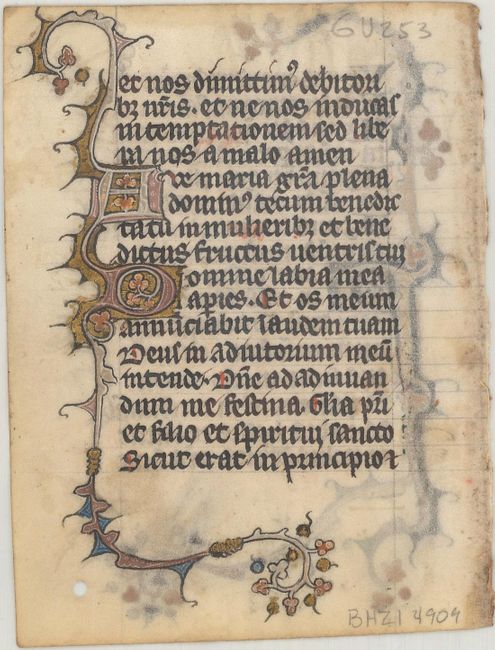 GU253
et nos dimittim⁹ debitori
bꝫ nr̄is. et ne nos inducas
in temptationem sed libe
ra nos a malo amen
Aue maria gr̄a plena
domin⁹ tecum benedic
ta tu in mulieribꝫ et bene
dictus fructus uentris tui
Domine labia mea
aperies. Et os meum
annunciabit laudem tuam
Deus in adiutorium meū
intende. Dn̄e ad adiuuan
dum me festina. Gl̄ia pr̄i
et filio et spiritui sancto
Sicut erat in principio ⁊
BHZI 4909